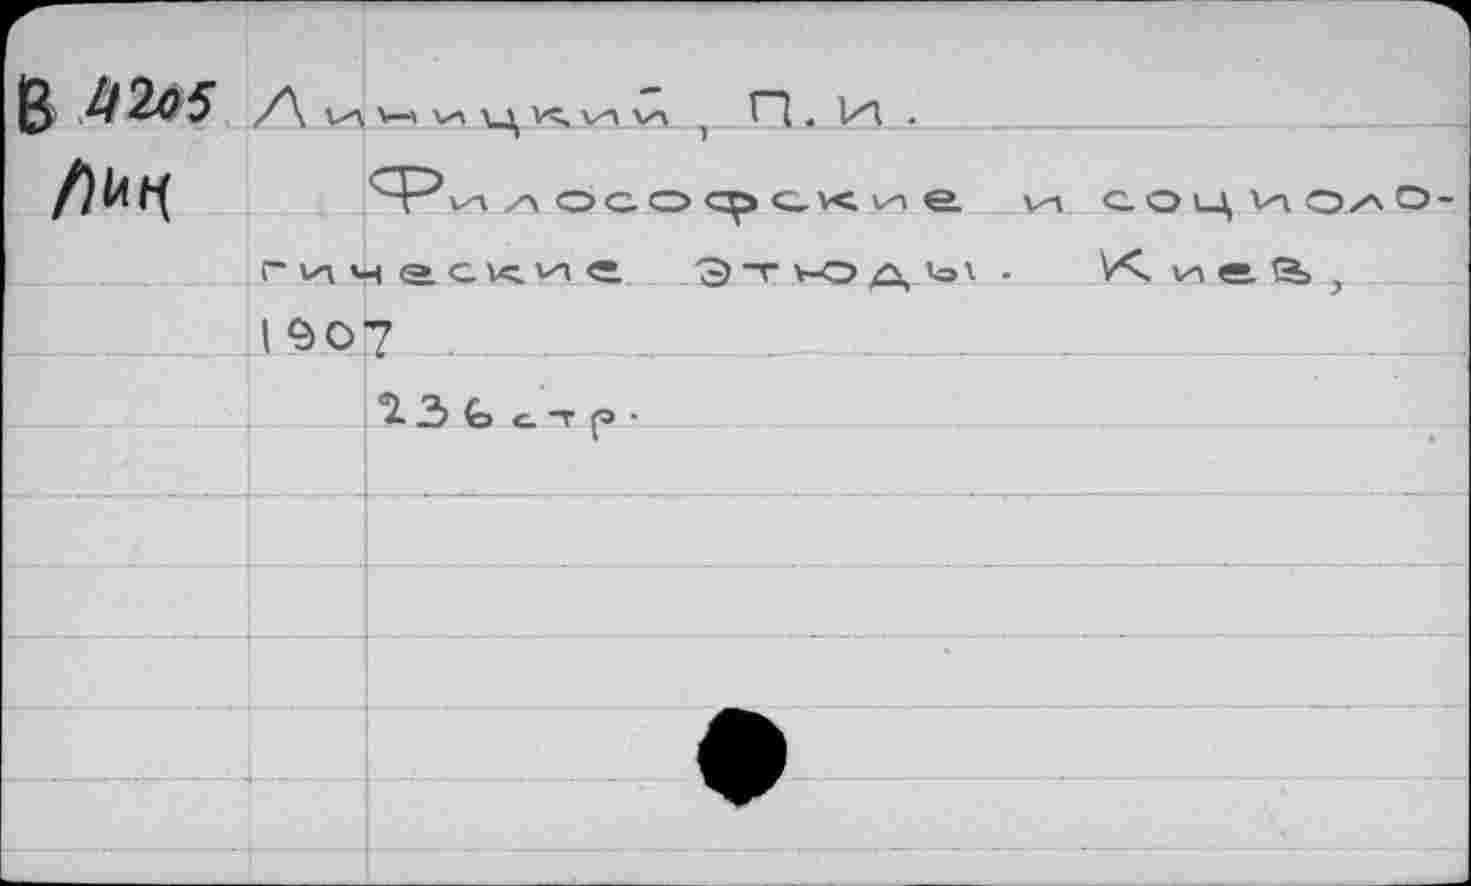 В 4205 Линицкий, П. И.
Лин Философские и социоло-
гические этюды. Киев,
1907
236 стр.